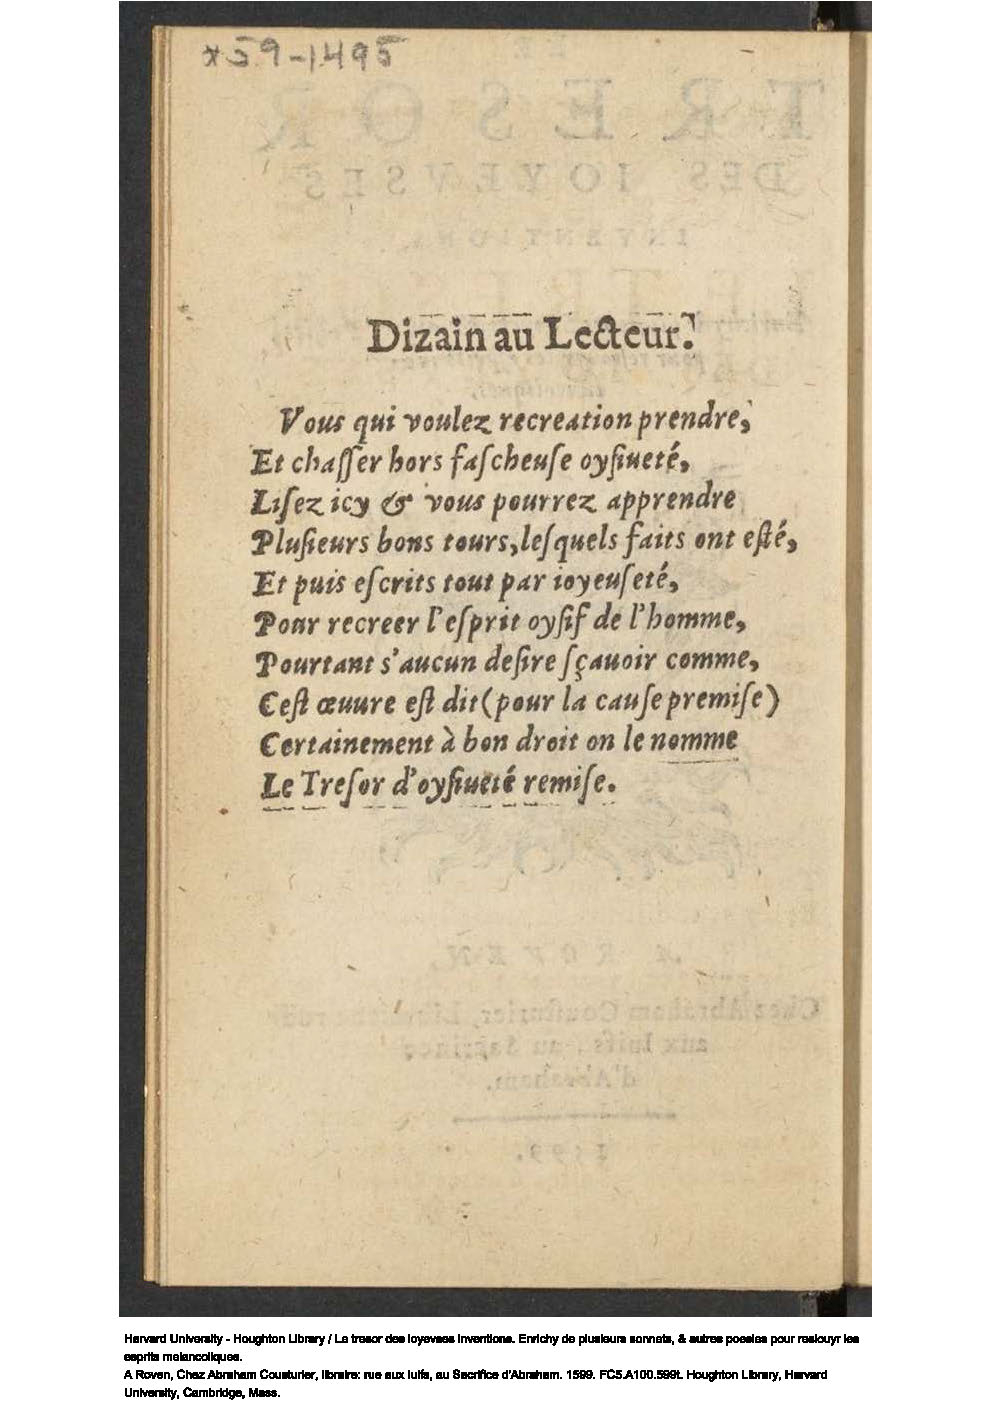 *59-1495
Dizain au Lecteur.
Vous qui voulez recreation prendre,
Et chasser hors fascheuse oysiueté,
Lisez icy & vous pourrez apprendre
Plusieurs bons tours, lesquels faits ont esté,
Et puis escrits tout par ioyeuseté,
Pour recreer l'esprit oysif de l'homme,
Pourtant s'aucun desire sçauoir comme,
Cest œuure est dit (pour la cause premise)
Certainement à bon droit on le nomme
Le Tresor d'oysiueté remise.
Harvard University - Houghton Library / Le tresor des ioyevses inventions. Enrichy de plusieurs sonnets, & autres poesies pour resiouyr les
esprits melancoliques.
A Roven, Chez Abraham Cousturier, libraire: rue aux Iuifs, au Sacrifice d'Abraham. 1599. FC5.A100.599t. Houghton Library, Harvard
University, Cambridge, Mass.